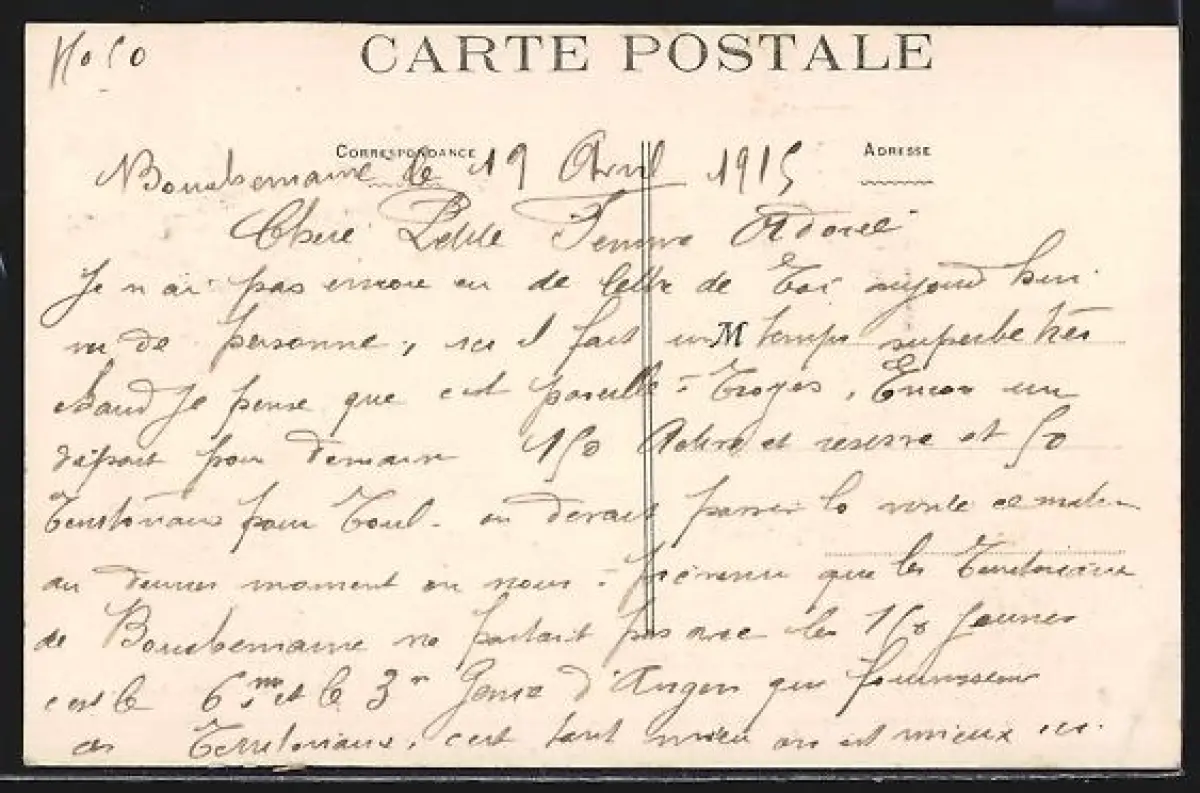 CARTE POSTALE
CORRESPONDANCE
ADRESSE
le 19 Avril 1915
Chere Petite Femme Adoreé
Je n ai pas encore eu de lettre de Toi aujourd hui
ni de personne, ici il fait un M temps superbe trés
chaud Je pense que c est pareille à Troyes, Encore un
départ pour demain 150 Active et reserve et 50
Territoriaux pour Toul. on devait passer la visite ce matin
au dernier moment on nous à prévenu que les Territoriaux
de ne partait pas avec les 150 Jeunes
c est le 6me et le 3e Genie d'Angers qui fournissent
ces Territoriaux, c est tant mieux on est mieux ici.